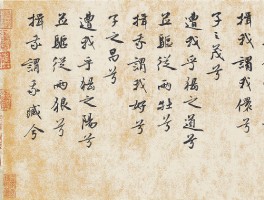 揖我謂我儇兮
子之茂兮
遭我乎峱之道兮
並驅從兩牡兮
揖我謂我好兮
子之昌兮
遭我乎峱之陽兮
並驅從兩狼兮
揖我謂我臧兮